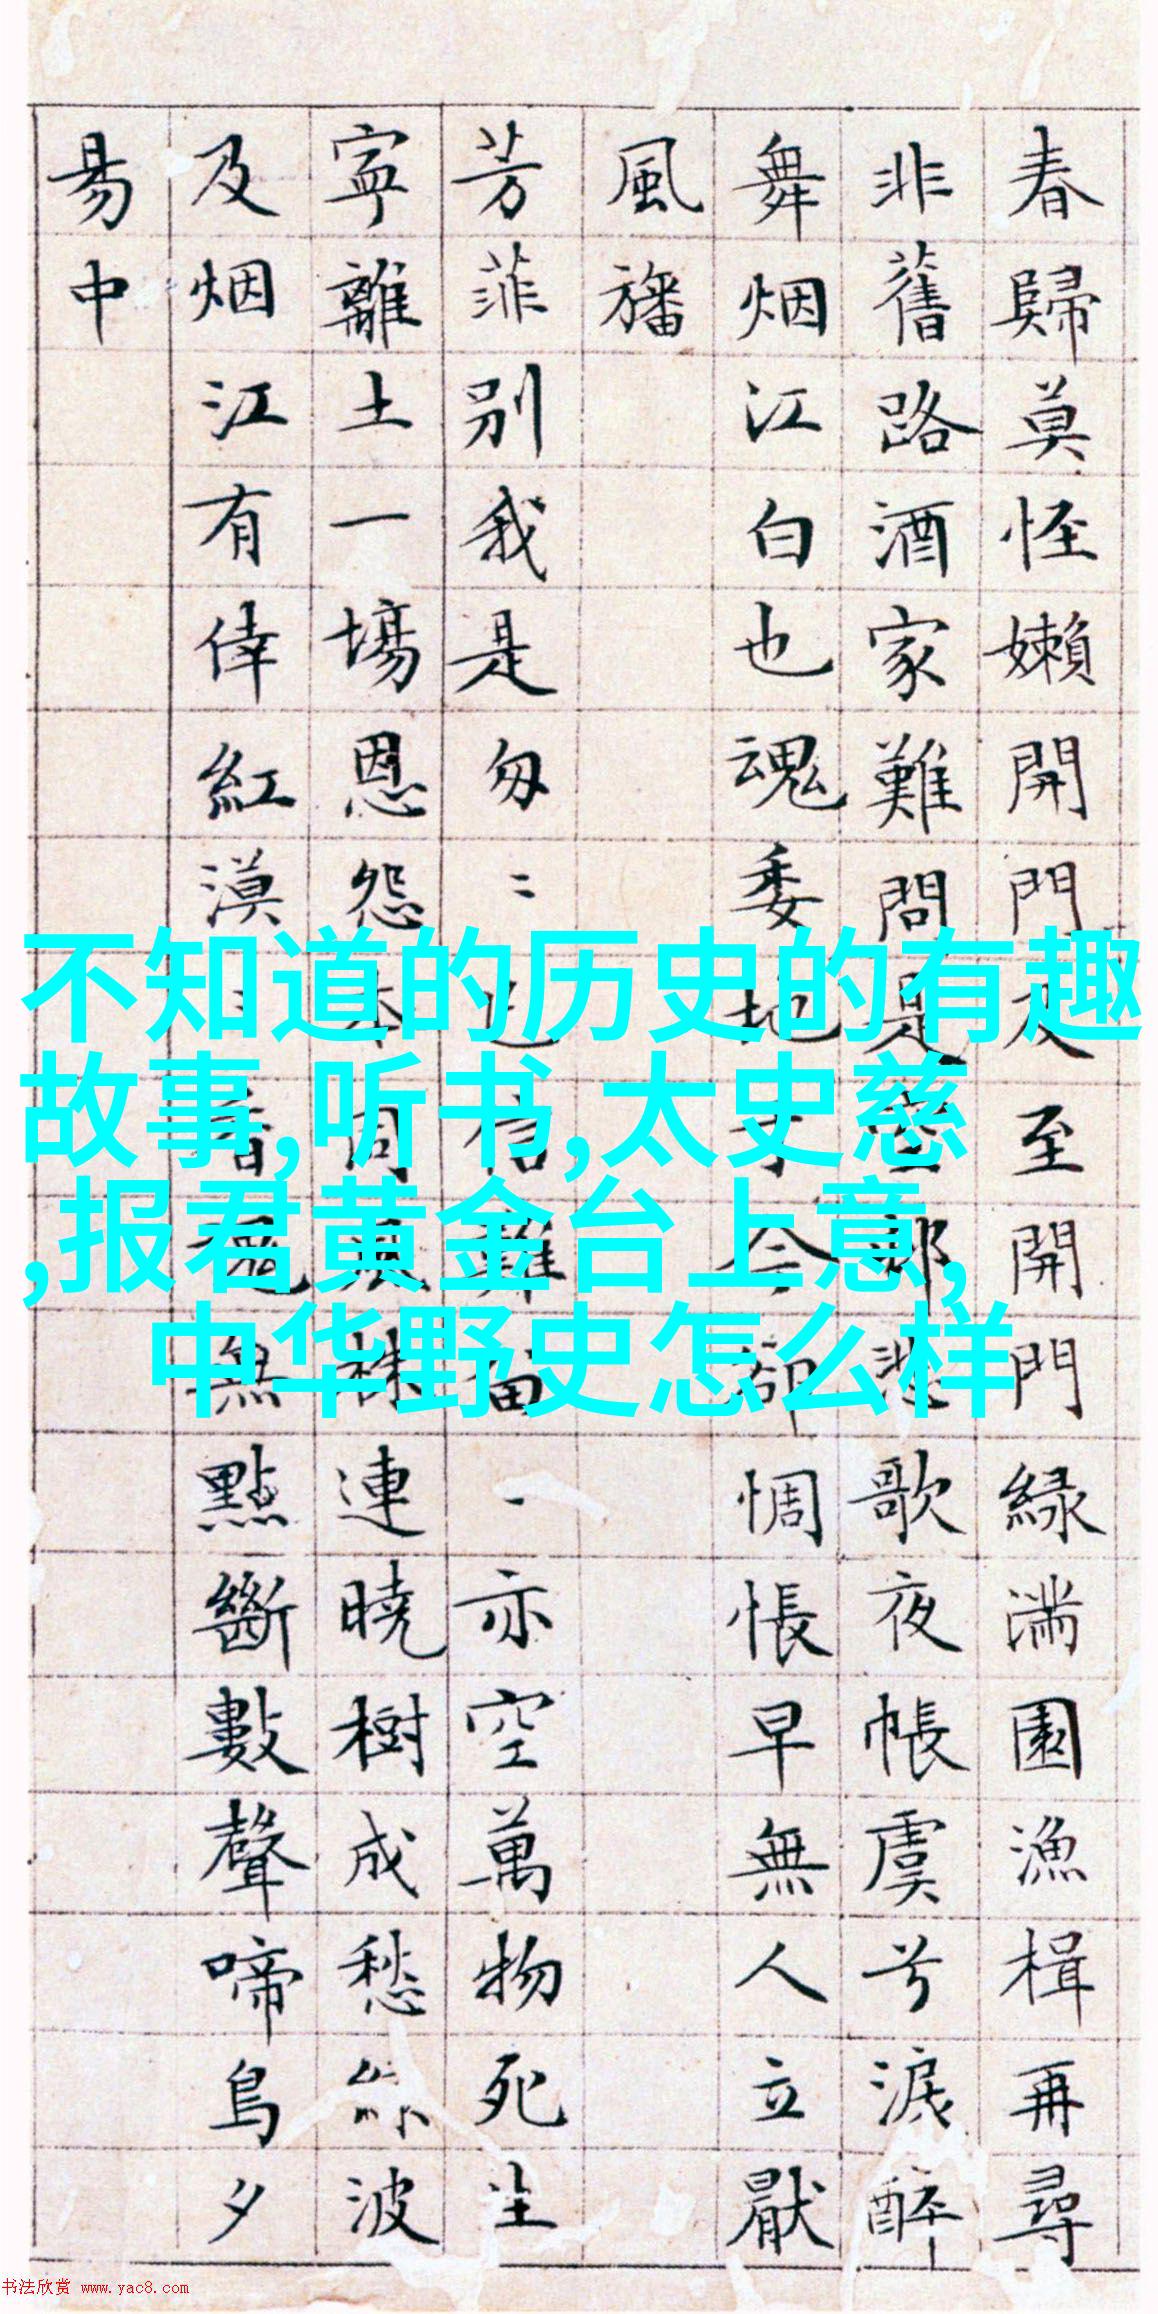 春歸莫怪嬾開門及至開門緑滿園漁楫再尋
非舊路酒家難問是空邨悲歌夜帳虞兮淚醉
舞烟江白也魂委地于今卻惆悵早無人立厭
風旛
芳菲別我是匆〻送信難留一亦空萬物死生
寧離土一場恩怨本同風株連曉樹成愁綠波
及烟江有倖紅漠〻香魂無點斷數聲啼鳥夕
易中
不知道的历史的有趣
故事,听书,太史慈
,报君黄金台上意,
中华野史怎么样
书法欣赏 www.yac8.com